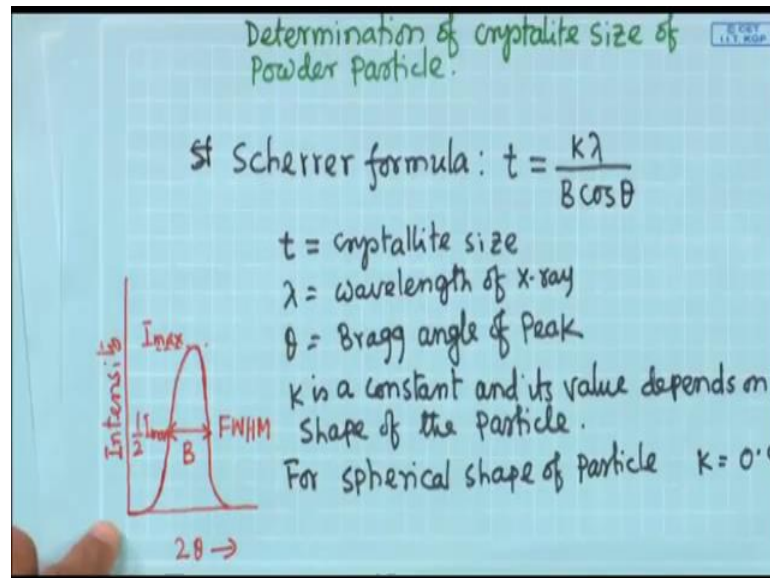 Determination of cryptalite size of
Powder Particle.
© CET
I.I.T. KGP
Scherrer formula: t = Kλ / B cos θ
t = cryptallite size
λ = wavelength of x-ray
θ = Bragg angle of Peak
K is a constant and its value depends on
shape of the particle.
For spherical shape of particle K = 0.
Intensity
Imax
1/2 Imax
B
FWHM
2θ →